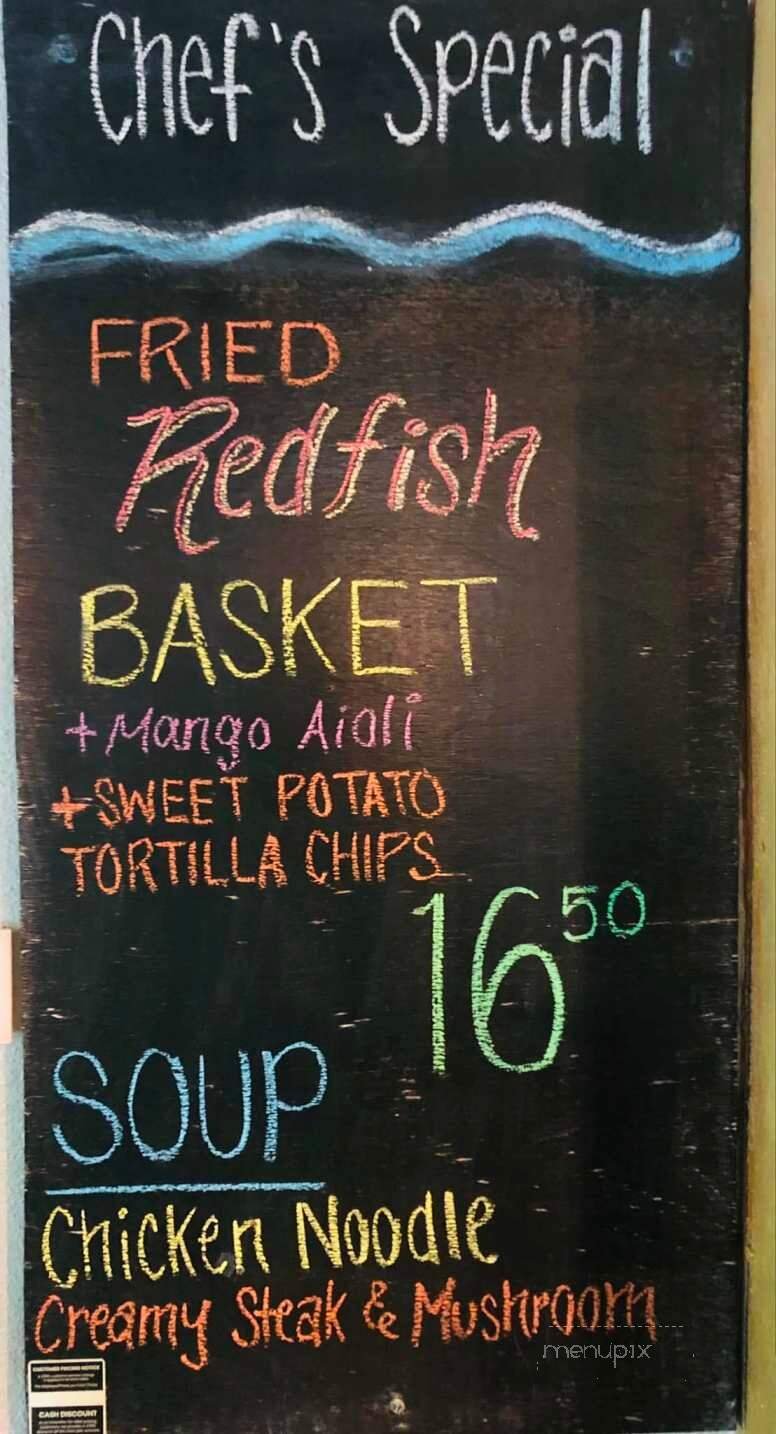 Chef's Special
FRIED
Redfish
BASKET
+Mango Aioli
+SWEET POTATO
TORTILLA CHIPS
16 50
SOUP
Chicken Noodle
Creamy Steak & Mushroom
menupix
CUSTOMER PRICING NOTICE
CASH DISCOUNT